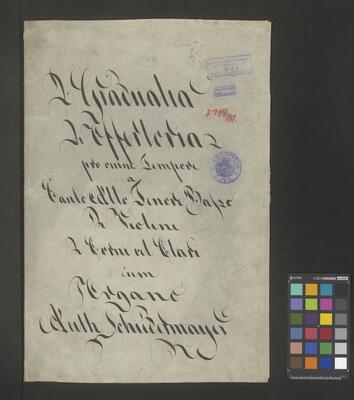 2 Gradualia
2 Offertoria
pro omni Tempore
a
Canto Alto Tenore Basso
2 Violini
2 Cornu vel Clari
cum
Organo
Auth Schiedermayer